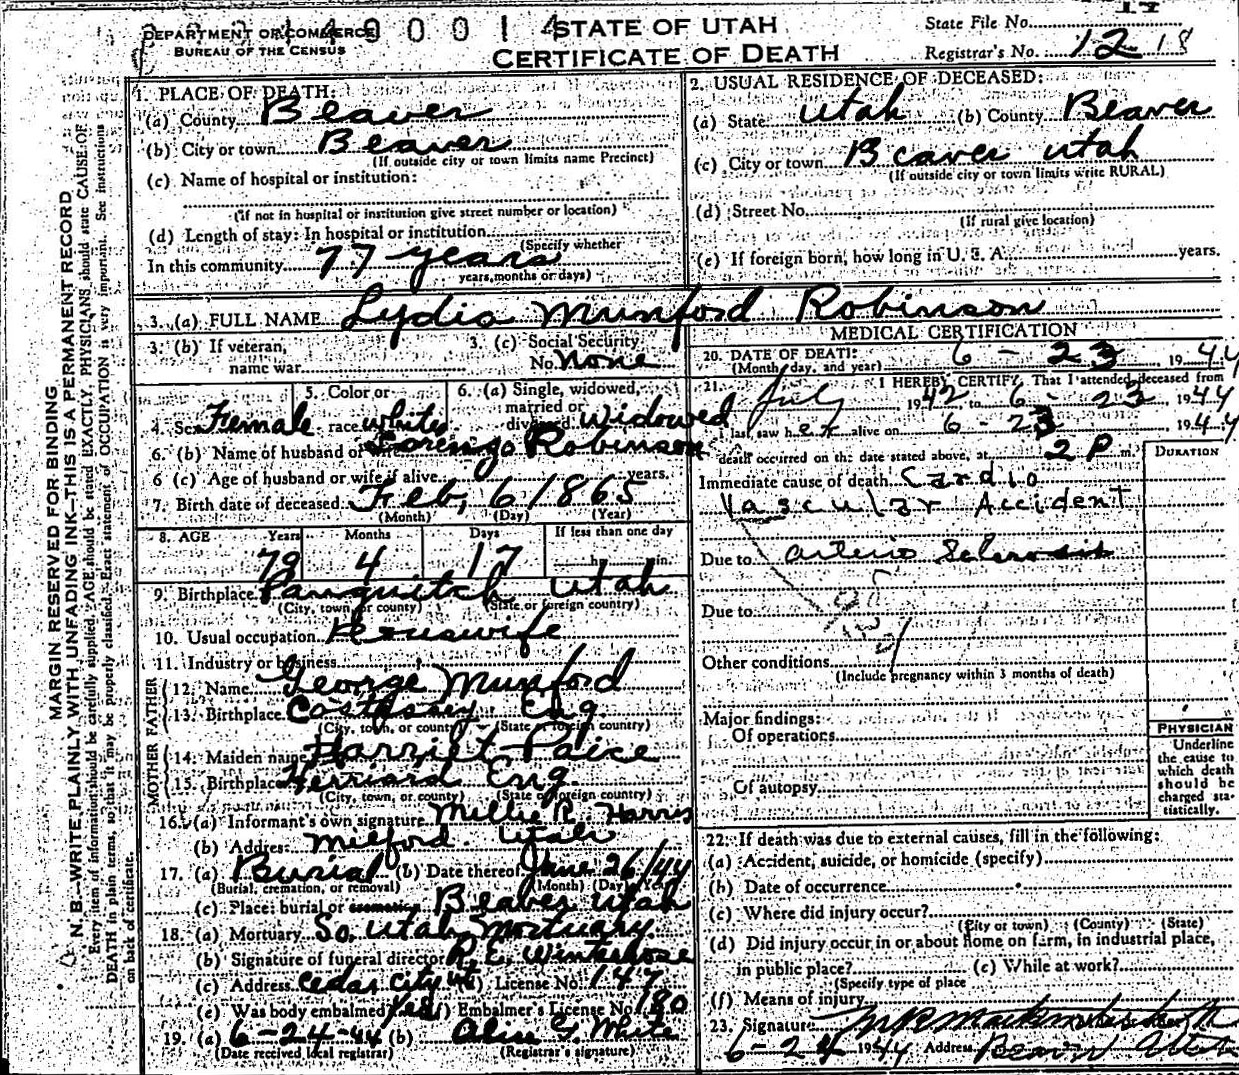 DEPARTMENT OF COMMERCE
BUREAU OF THE CENSUS
STATE OF UTAH
CERTIFICATE OF DEATH
State File No.
Registrar's No. 12 18
MARGIN RESERVED FOR BINDING
N. B.—WRITE PLAINLY WITH UNFADING INK—THIS IS A PERMANENT RECORD
Every item of information should be carefully supplied. AGE should be stated EXACTLY. PHYSICIANS should state CAUSE OF
DEATH in plain terms, so that it may be properly classified. Exact statement of OCCUPATION is very important. See instructions
on back of certificate.
1. PLACE OF DEATH:
(a) County Beaver
(b) City or town Beaver
(If outside city or town limits name Precinct)
(c) Name of hospital or institution:
(If not in hospital or institution give street number or location)
(d) Length of stay: In hospital or institution
(Specify whether
In this community 77 years
years, months or days)
2. USUAL RESIDENCE OF DECEASED:
(a) State Utah (b) County Beaver
(c) City or town Beaver Utah
(If outside city or town limits write RURAL)
(d) Street No.
(If rural give location)
(e) If foreign born, how long in U. S. A. years.
3. (a) FULL NAME Lydia Munford Robinson
3. (b) If veteran,
name war
3. (c) Social Security
No. None
4. Sex Female
5. Color or
race white
6. (a) Single, widowed,
married or
divorced Widowed
6. (b) Name of husband or Lorenzo Robinson
6 (c) Age of husband or wife if alive years.
7. Birth date of deceased Feb, 6 1865
(Month) (Day) (Year)
8. AGE Years Months Days If less than one day
79 4 17 hr. min.
9. Birthplace Panguitch Utah
(City, town, or county) (State or foreign country)
10. Usual occupation Housewife
11. Industry or business
FATHER
12. Name George Munford
13. Birthplace Costessey Eng.
(City, town, or county) (State or foreign country)
MOTHER
14. Maiden name Harriet Paice
15. Birthplace Herriard Eng.
(City, town, or county) (State or foreign country)
16. (a) Informant's own signature Millie R. Harris
(b) Address Milford. Utah
17. (a) Burial (b) Date thereof June 26/44
(Burial, cremation, or removal) (Month) (Day) (Year)
(c) Place: burial or cremation Beaver Utah
18. (a) Mortuary So. Utah Mortuary
(b) Signature of funeral director R. E. Winterose
(c) Address Cedar City Ut (d) License No. 147
(e) Was body embalmed Yes (f) Embalmer's License No. 180
19. (a) 6-24-44 (b) Alice G. White
(Date received local registrar) (Registrar's signature)
MEDICAL CERTIFICATION
20. DATE OF DEATH: 6 - 23 1944
(Month, day, and year)
21. I HEREBY CERTIFY, That I attended deceased from
July 1942 to 6 - 23 1944
I last saw her alive on 6 - 23 1944
death occurred on the date stated above, at 2 P m.
DURATION
Immediate cause of death Cardio
Vascular Accident
Due to arterio Sclerosis
Due to
Other conditions
(Include pregnancy within 3 months of death)
Major findings:
Of operations
Of autopsy
PHYSICIAN
Underline
the cause to
which death
should be
charged sta-
tistically.
22. If death was due to external causes, fill in the following:
(a) Accident, suicide, or homicide (specify)
(b) Date of occurrence
(c) Where did injury occur?
(City or town) (County) (State)
(d) Did injury occur in or about home on farm, in industrial place,
in public place? (e) While at work?
(Specify type of place
(f) Means of injury
23. Signature
6-24 1944 Address Beaver Utah